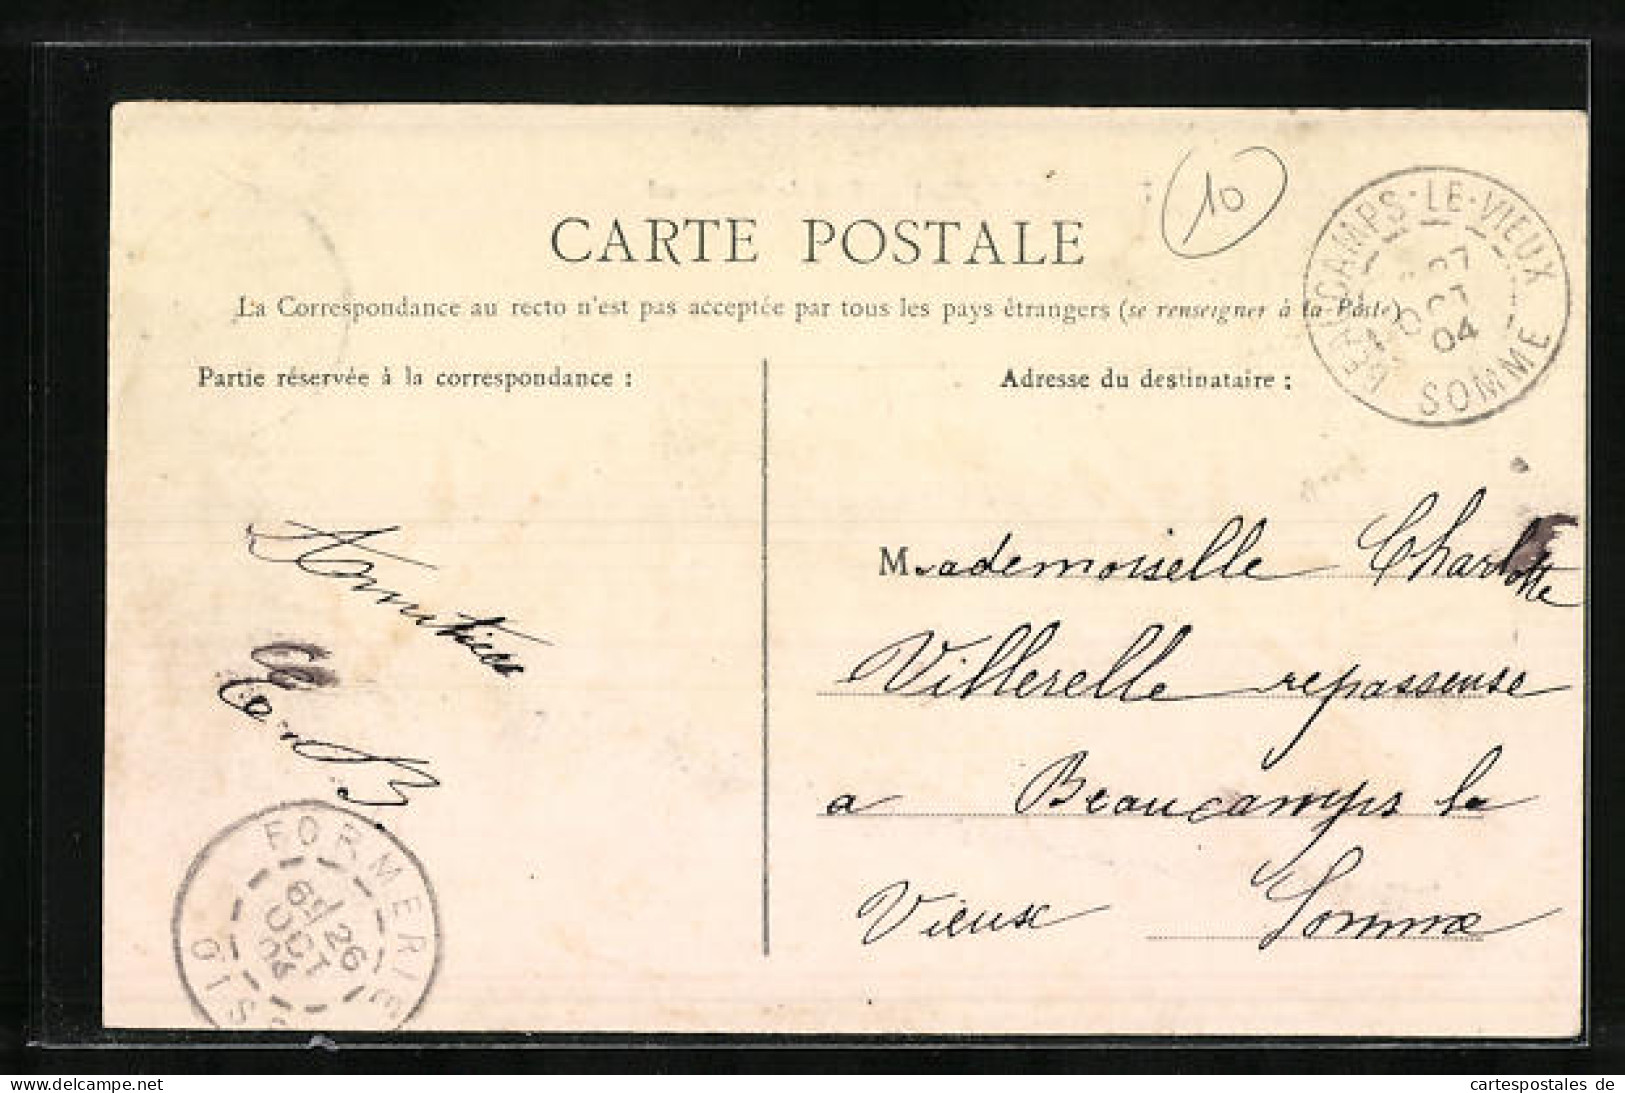 10
CARTE POSTALE
La Correspondance au recto n'est pas acceptée par tous les pays étrangers (se renseigner à la Poste)
BEAUCAMPS-LE-VIEUX
27
OCT
04
SOMME
Partie réservée à la correspondance :
Adresse du destinataire :
Mademoiselle Charlotte
Villerelle repasseuse
a Beaucamps le
Vieux Somme
Amitiées
B.
FORMERIE
6E 26
OCT
04
OIS
hamburger-ansichtskarten-haendler.de
cartespostales de